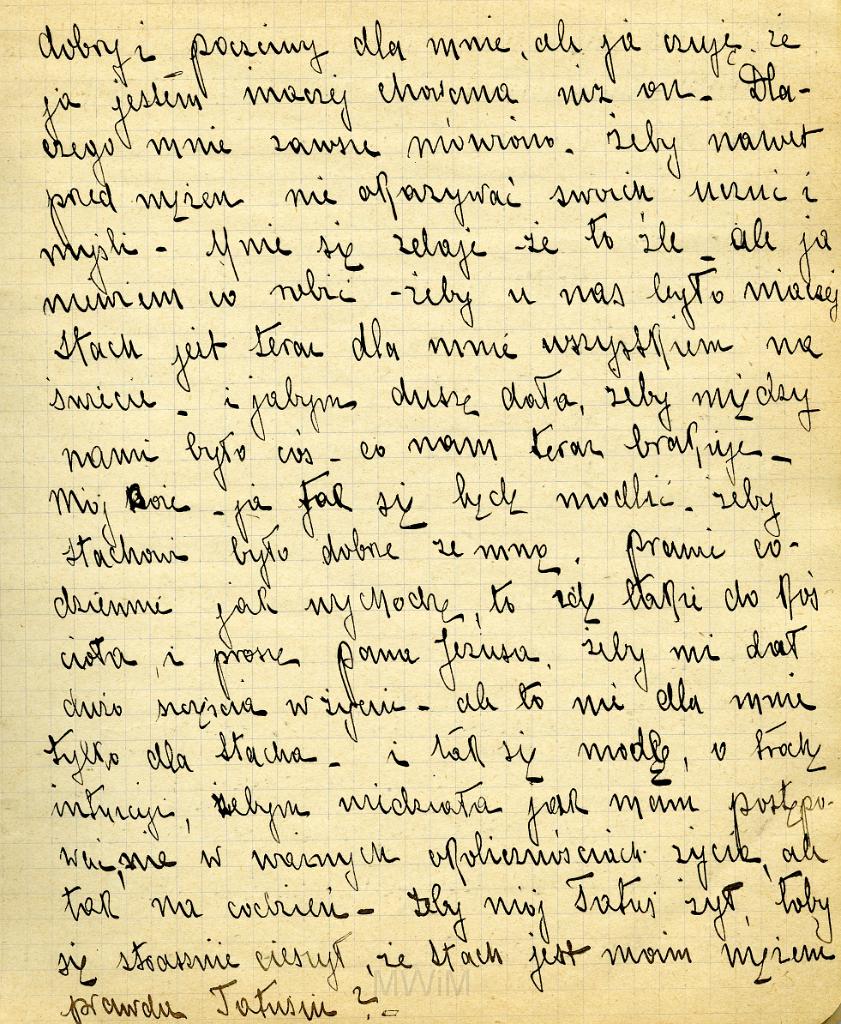 dobry i poczciwy dla mnie, ale ja czuję, że
ja jestem inaczej chowana niż on - Dla-
czego mnie zawsze mówiono - żeby nawet
przed mężem nie okazywać swoich uczuć i
myśli - Mnie się zdaje że to źle - ale ja
niewiem co robić - żeby u nas było inaczej
Stach jest teraz dla mnie wszystkiem na
świecie - i jabym duszę dała, żeby między
nami było coś - co nam teraz brakuje -
Mój Boże - ja tak się będę modlić - żeby
Stachowi było dobrze ze mną. Prawie co-
dziennie jak wychodzę, to idę także do Koś
cioła, i proszę Pana Jezusa, żeby mi dał
dużo szczęścia w życiu - ale to nie dla mnie
tylko dla Stacha - i tak się modlę, o trochę
intuicji, żebym wiedziała jak mam postępo-
wać, nie w ważnych okolicznościach życia, ale
tak na codzień - Żeby mój Tatuś żył, toby
się strasznie cieszył, że Stach jest moim mężem
prawda Tatusiu? -
MWiM